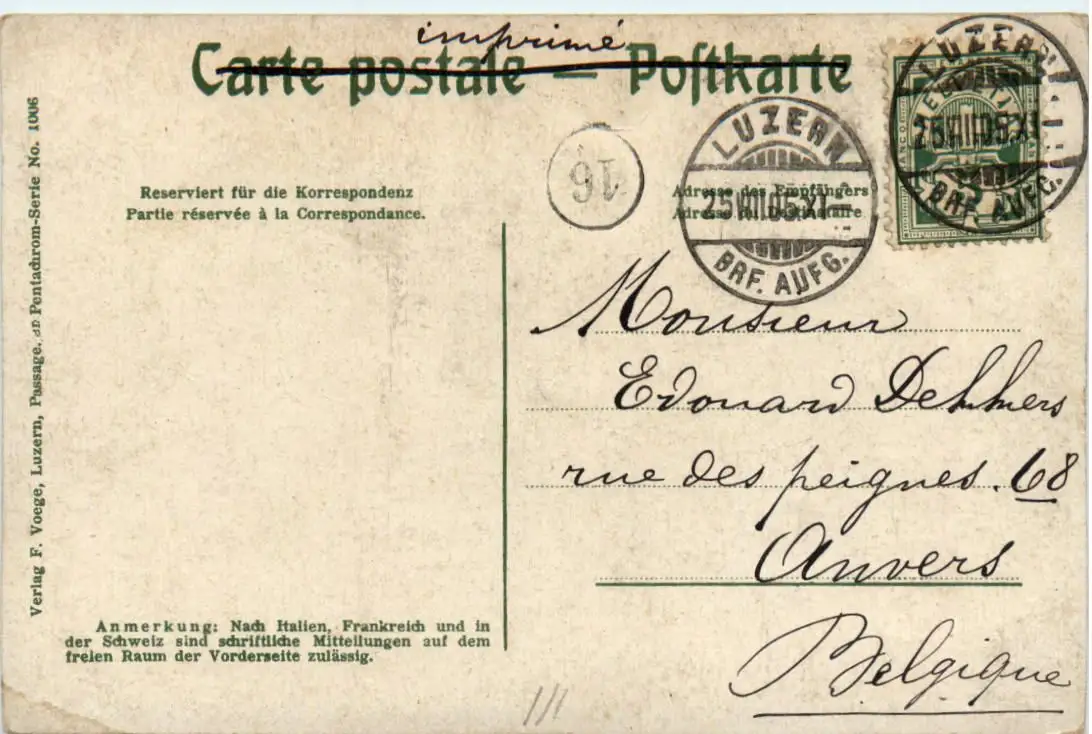 imprimé
Carte postale — Postkarte
LUZERN
25.VIII.05.XI
BRF. AUFG.
LUZERN
25.VIII.05.XI
BRF. AUFG.
HELVETIA
FRANCO
16
Reserviert für die Korrespondenz
Partie réservée à la Correspondance.
Adresse des Empfängers
Adresse du Destinataire
Monsieur
Edouard Dekkers
rue des peignes. 68
Anvers
Belgique
Anmerkung: Nach Italien, Frankreich und in
der Schweiz sind schriftliche Mitteilungen auf dem
freien Raum der Vorderseite zulässig.
Verlag F. Voege, Luzern, Passage. Pentachrom-Serie No. 1006